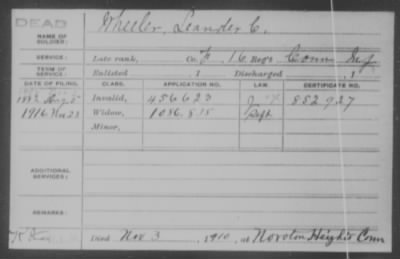 DEAD
NAME OF SOLDIER: Wheeler, Leander C.
SERVICE: Late rank, Co. 16 Reg't Conn Inf
TERM OF SERVICE: Enlisted , 1 Discharged , 1
DATE OF FILING. CLASS. APPLICATION NO. LAW. CERTIFICATE NO.
1882 Aug 5 Invalid, 456623 882927
1916 Nov 23 Widow, 1086 815
Minor,
ADDITIONAL SERVICES:
REMARKS:
Died Nov 3, 1910, at Noroton Heights Conn